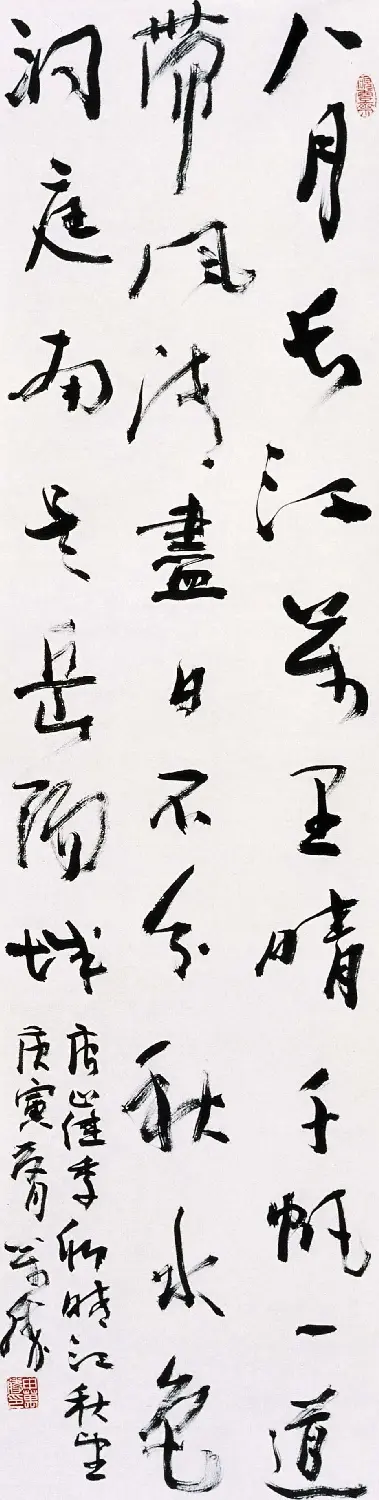 八月長江萬里晴千帆一道
帶風輕盡日不分秋水色
洞庭南是岳陽城
唐崔季卿晴江秋望
庚寅